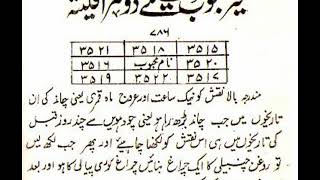 ۷۸۶
۳۵۲۱ ۳۵۱۸ ۳۵۱۵
۳۵۱۶ نام محبوب ۳۵۲۰
۳۵۱۹ ۳۵۲۲ ۳۵۱۷
مندرجہ بالا نقش کو نیک ساعت اور عروج ماہ قمری یعنی چاند کی ان
تاریخوں میں جب چاند بڑھ رہا ہو یعنی چودہویں سے چند روز قبل
کی تاریخوں میں ہی اس نقش کو لکھنا چاہیئے اور پھر جب لکھ لیں
تو روغن چنبیلی کا ایک چراغ بنائیں چراغ کوری پیالی کا ہو اور بعد